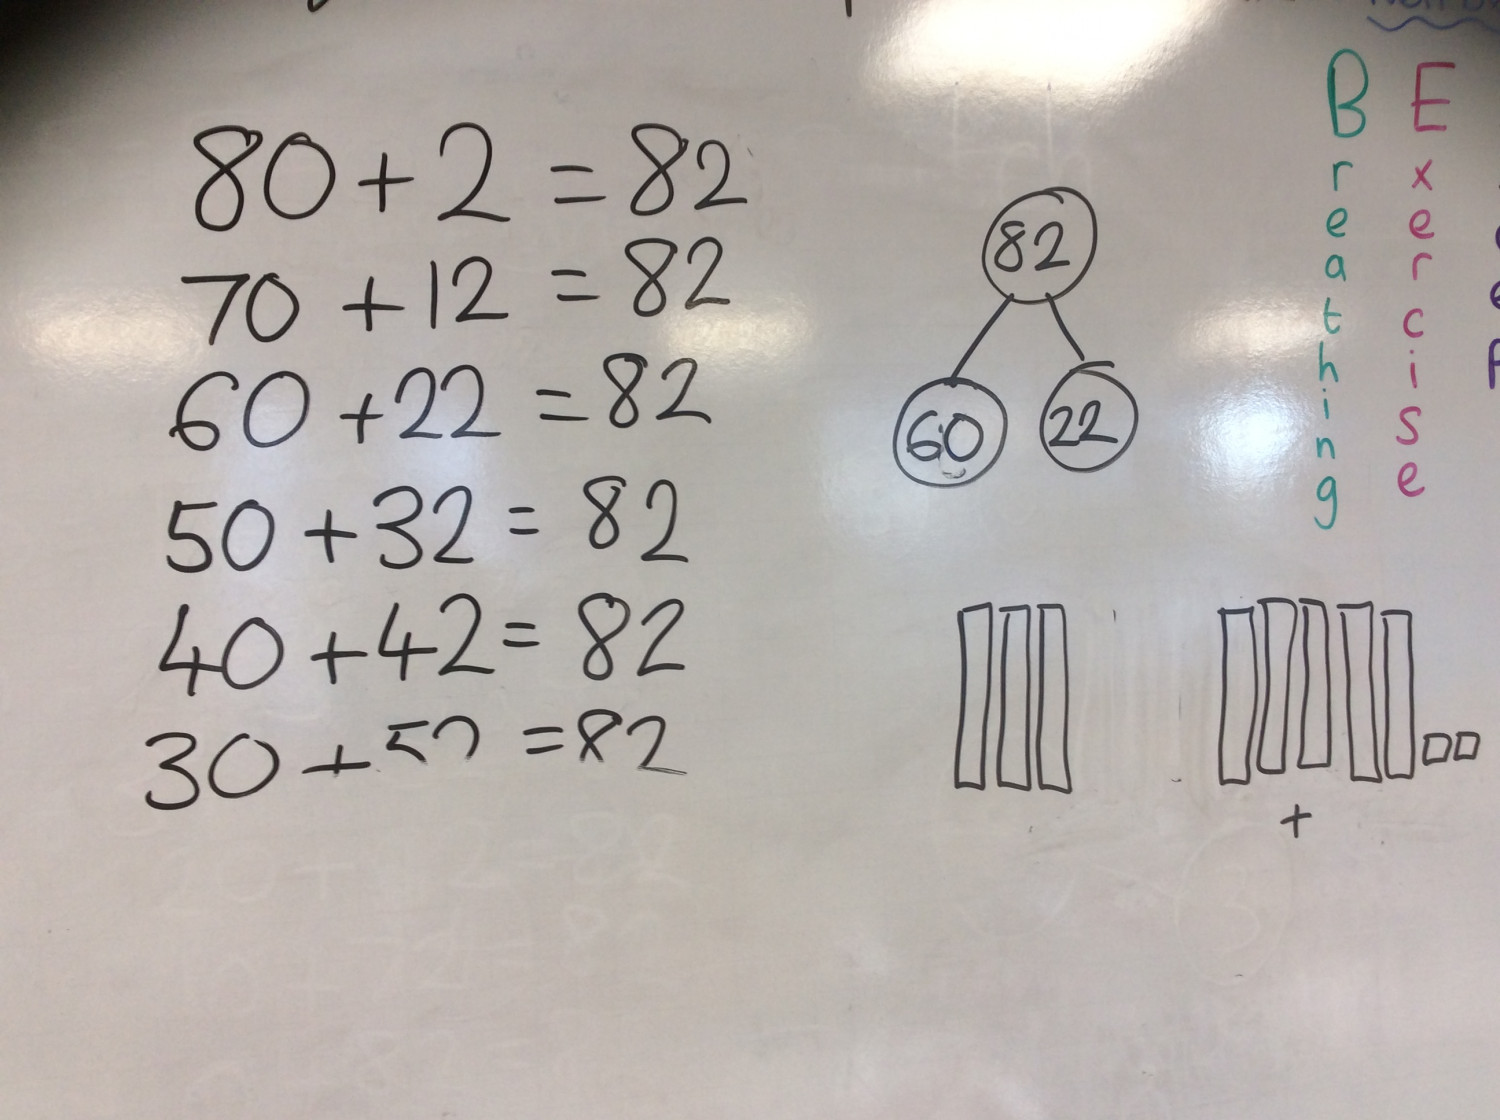 80 + 2 = 82
70 + 12 = 82
60 + 22 = 82
50 + 32 = 82
40 + 42 = 82
30 + 52 = 82
82
60 22
+
Breathing
Exercise